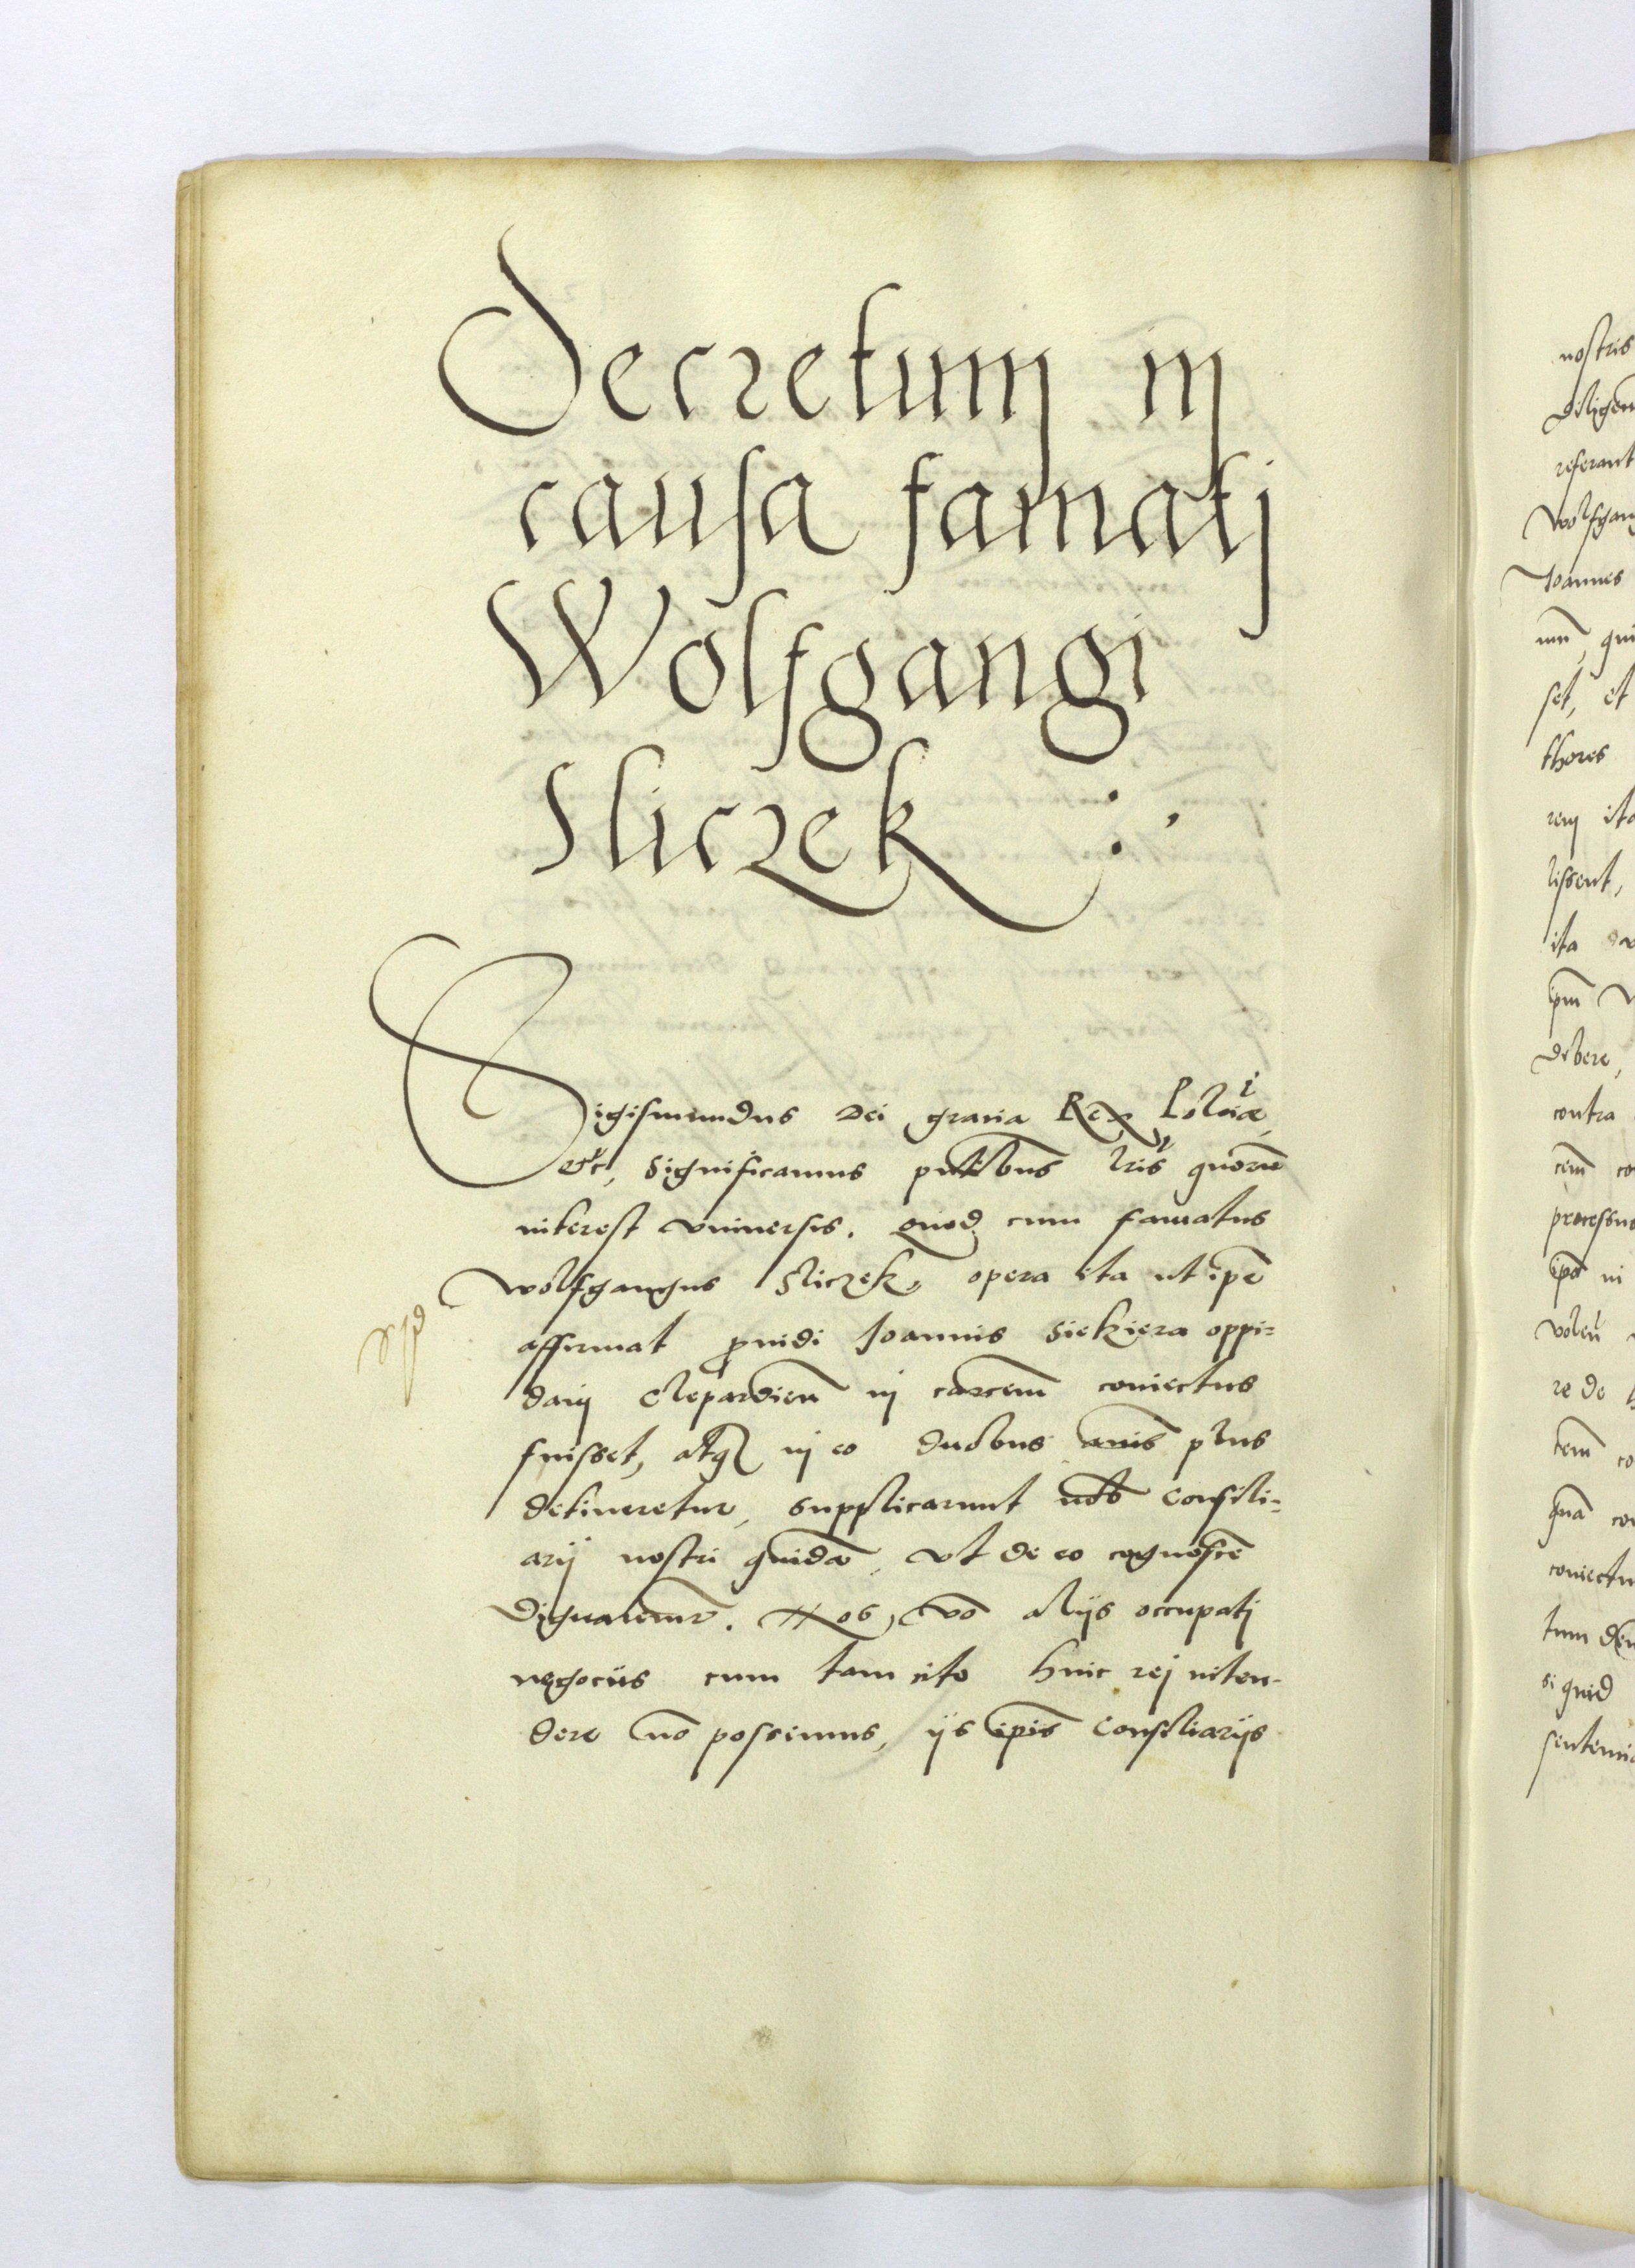 Decretum in
causa famatj
Wolfgangi
Sliczek
Sigismundus Dei gratia Rex Poloiæ
etc, significamus pntibus lris quorū
interest vniuersis. Quod cum famatus
Wolfgangus Sliczek, opera ita ut ipe
affirmat puidi Joannis Siekiera oppi=
danj Clepardien̄ in carcem̄ coniectus
fuisset, atq in eo duobus anis plus
detineretur, supplicarunt nob Consili=
arij nostri quidā, vt de eo cognoscē
dignaremur. Nos, vō alijs occupatj
negociis cum tam cito huic rej inten-
dere nō possemus, ijs ipis Consiliarijs
nostris
diligen
referant
Wolfgan
Joannes
num qui
set, et
thores
rem ita
lissent,
ita
ipm
debere,
contra
cem̄ co
processus
ipo in
volen
re de
cem̄ co
quā con
coniectu
tum den
si quid
sententia